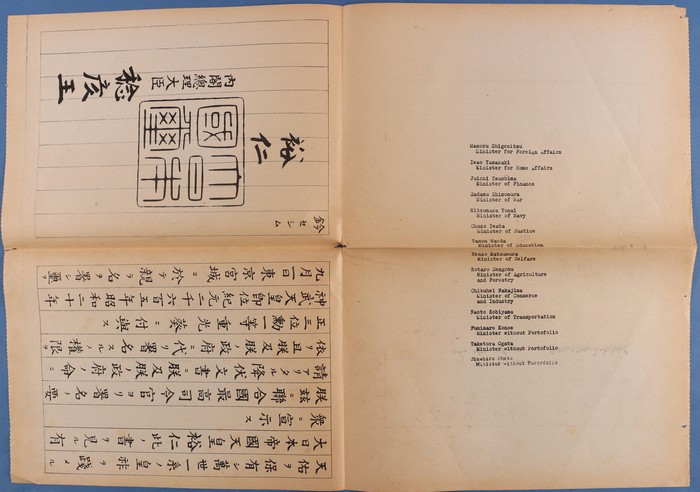 天佑ヲ保有シ萬世一系ノ皇祚ヲ踐メル
大日本帝國天皇裕仁此ノ書ヲ見ル有
衆ニ宣示ス
朕茲ニ聯合國最高司令官ヨリ署名ノ要
請アリタル降伏文書ニ朕政府ノ命ニ
依リ且朕及朕政府ニ代リ署名スルノ權限ヲ
正三位勳一等重光葵ニ付與ス
神武天皇即位紀元二千六百五年昭和二十年
九月一日東京宮城ニ於テ親ラ名ヲ署シ璽ヲ
鈐セシム
裕仁
大日本國璽
内閣總理大臣
稔彦王
Mamoru Shigemitsu
Minister for Foreign Affairs
Iwao Yamazaki
Minister for Home Affairs
Juichi Tsushima
Minister of Finance
Sadamu Shimomura
Minister of War
Mitsumasa Yonai
Minister of Navy
Chuzo Iwata
Minister of Justice
Tamon Maeda
Minister of Education
Kenzo Matsumura
Minister of Welfare
Kotaro Sengoku
Minister of Agriculture
and Forestry
Chikuhei Nakajima
Minister of Commerce
and Industry
Naoto Kobiyama
Minister of Transportation
Fumimaro Konoe
Minister without Portofolio
Taketora Ogata
Minister without Portofolio
Binshiro Obata
Minister without Portofolio